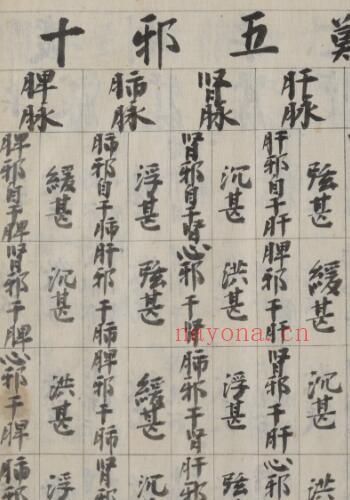 五邪十
肝脉
弦甚
緩甚
沉甚
洪
肝邪自干肝
脾邪干肝
肾邪干肝
心邪
肾脉
沉甚
洪甚
浮甚
弦
肾邪自干肾
心邪干肾
肺邪干肾
肝邪
肺脉
浮甚
弦甚
緩甚
沉
肺邪自干肺
肝邪干肺
脾邪干肺
肾邪
脾脉
緩甚
沉甚
洪甚
浮
脾邪自干脾
肾邪干脾
心邪干脾
肺邪
nayona.cn